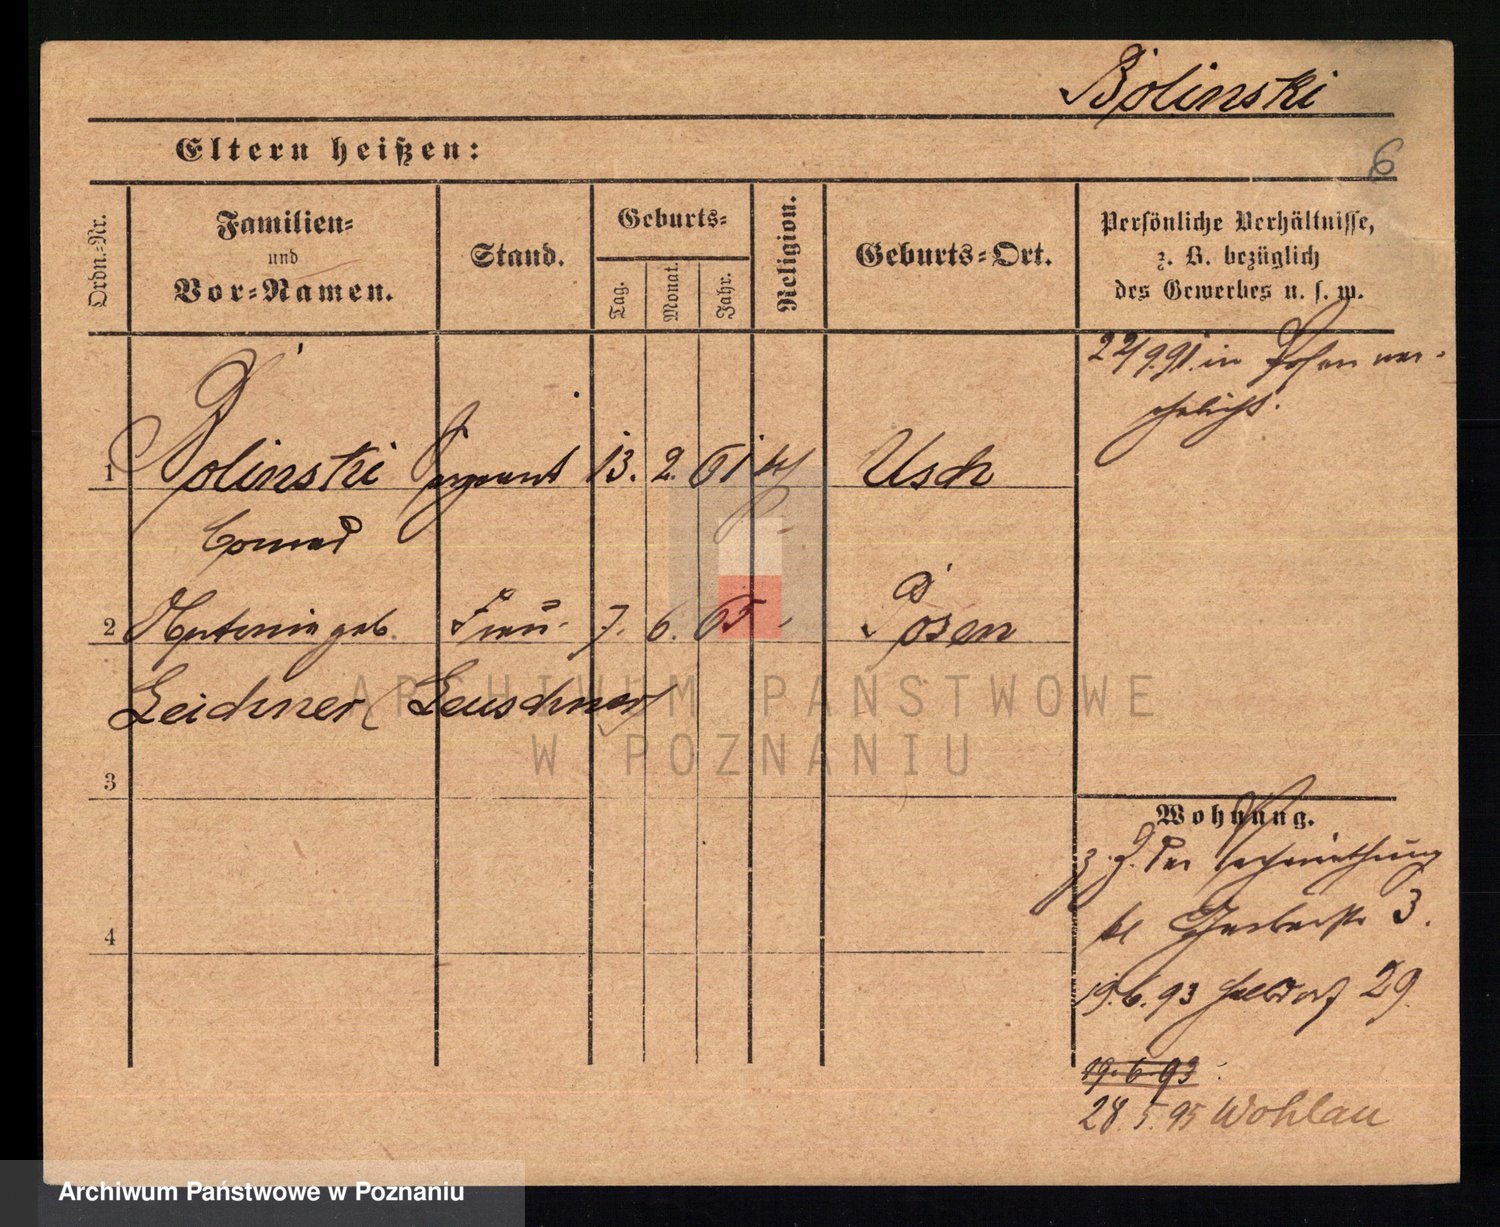 Bolinski
6
Eltern heißen:
Ordn.-Nr.
Familien-
und
Vor-Namen.
Stand.
Geburts-
Tag.
Monat.
Jahr.
Religion.
Geburts-Ort.
Persönliche Verhältnisse,
z. B. bezüglich
des Gewerbes u. s. w.
22/9.91. in Posen ver-
ehelicht.
1 Polinski Sergeant 13. 2. 61 kf Usch
Conrad
2 geb. Frau 7. 6. Posen
Leichner (Leuschner)
3
4
Wohnung.
z. Z. der
kl Gerberstr 3.
19.6.93 Halbdorf 29.
19.6.93
28.5.95 Wohlau
ARCHIWUM PAŃSTWOWE
W POZNANIU
Archiwum Państwowe w Poznaniu